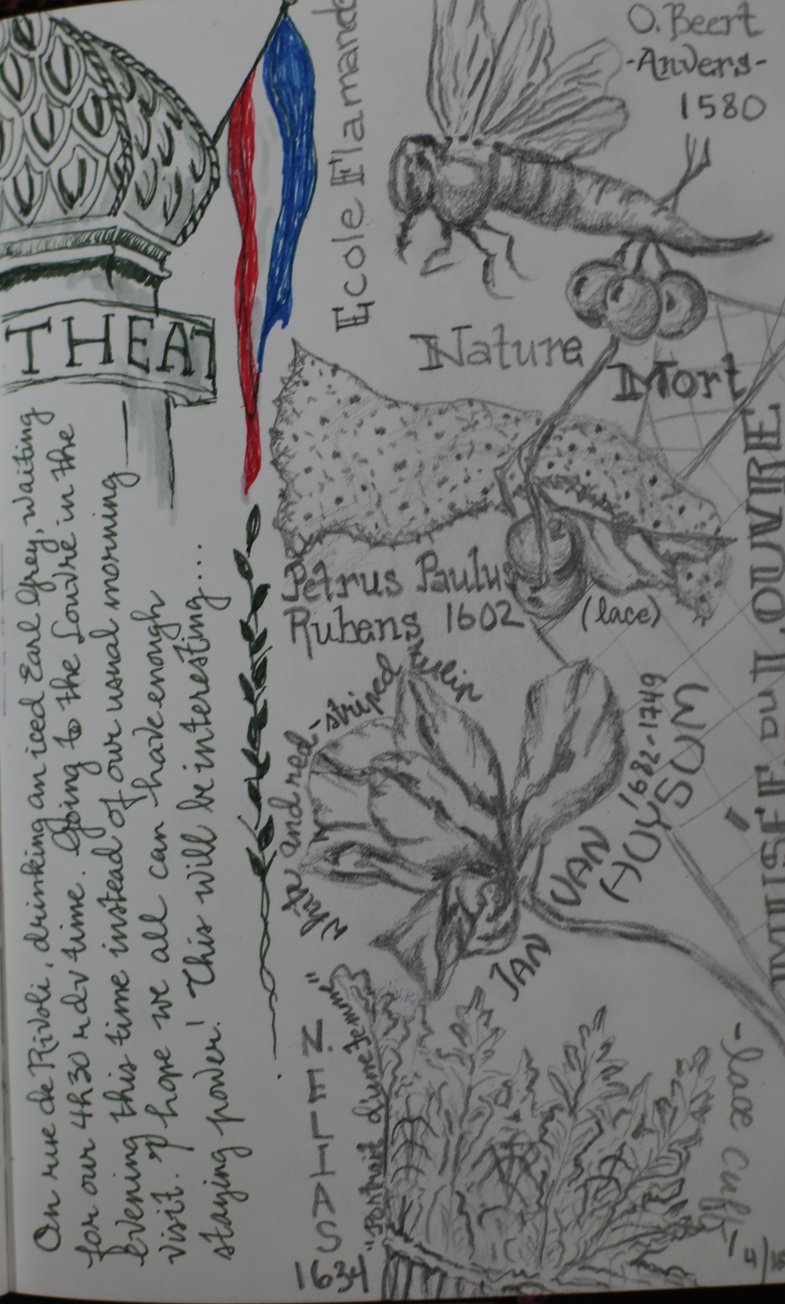 THEAT
On rue de Rivoli, drinking an iced Earl Grey, waiting
for our 4h30 rdv time. Going to the Louvre in the
evening this time instead of our usual morning
visit. I hope we all can have enough
staying power! This will be interesting...
Ecole Flamande
O. Beert
-Anvers-
1580
Nature
Mort
Petrus Paulus
Rubens 1602
(lace)
white and red-striped tulip
JAN
VAN
HUYSUM
1682-1749
MUSÉE DU LOUVRE
N. ELIAS
1634
"Portrait d'une femme"
-lace cuff-